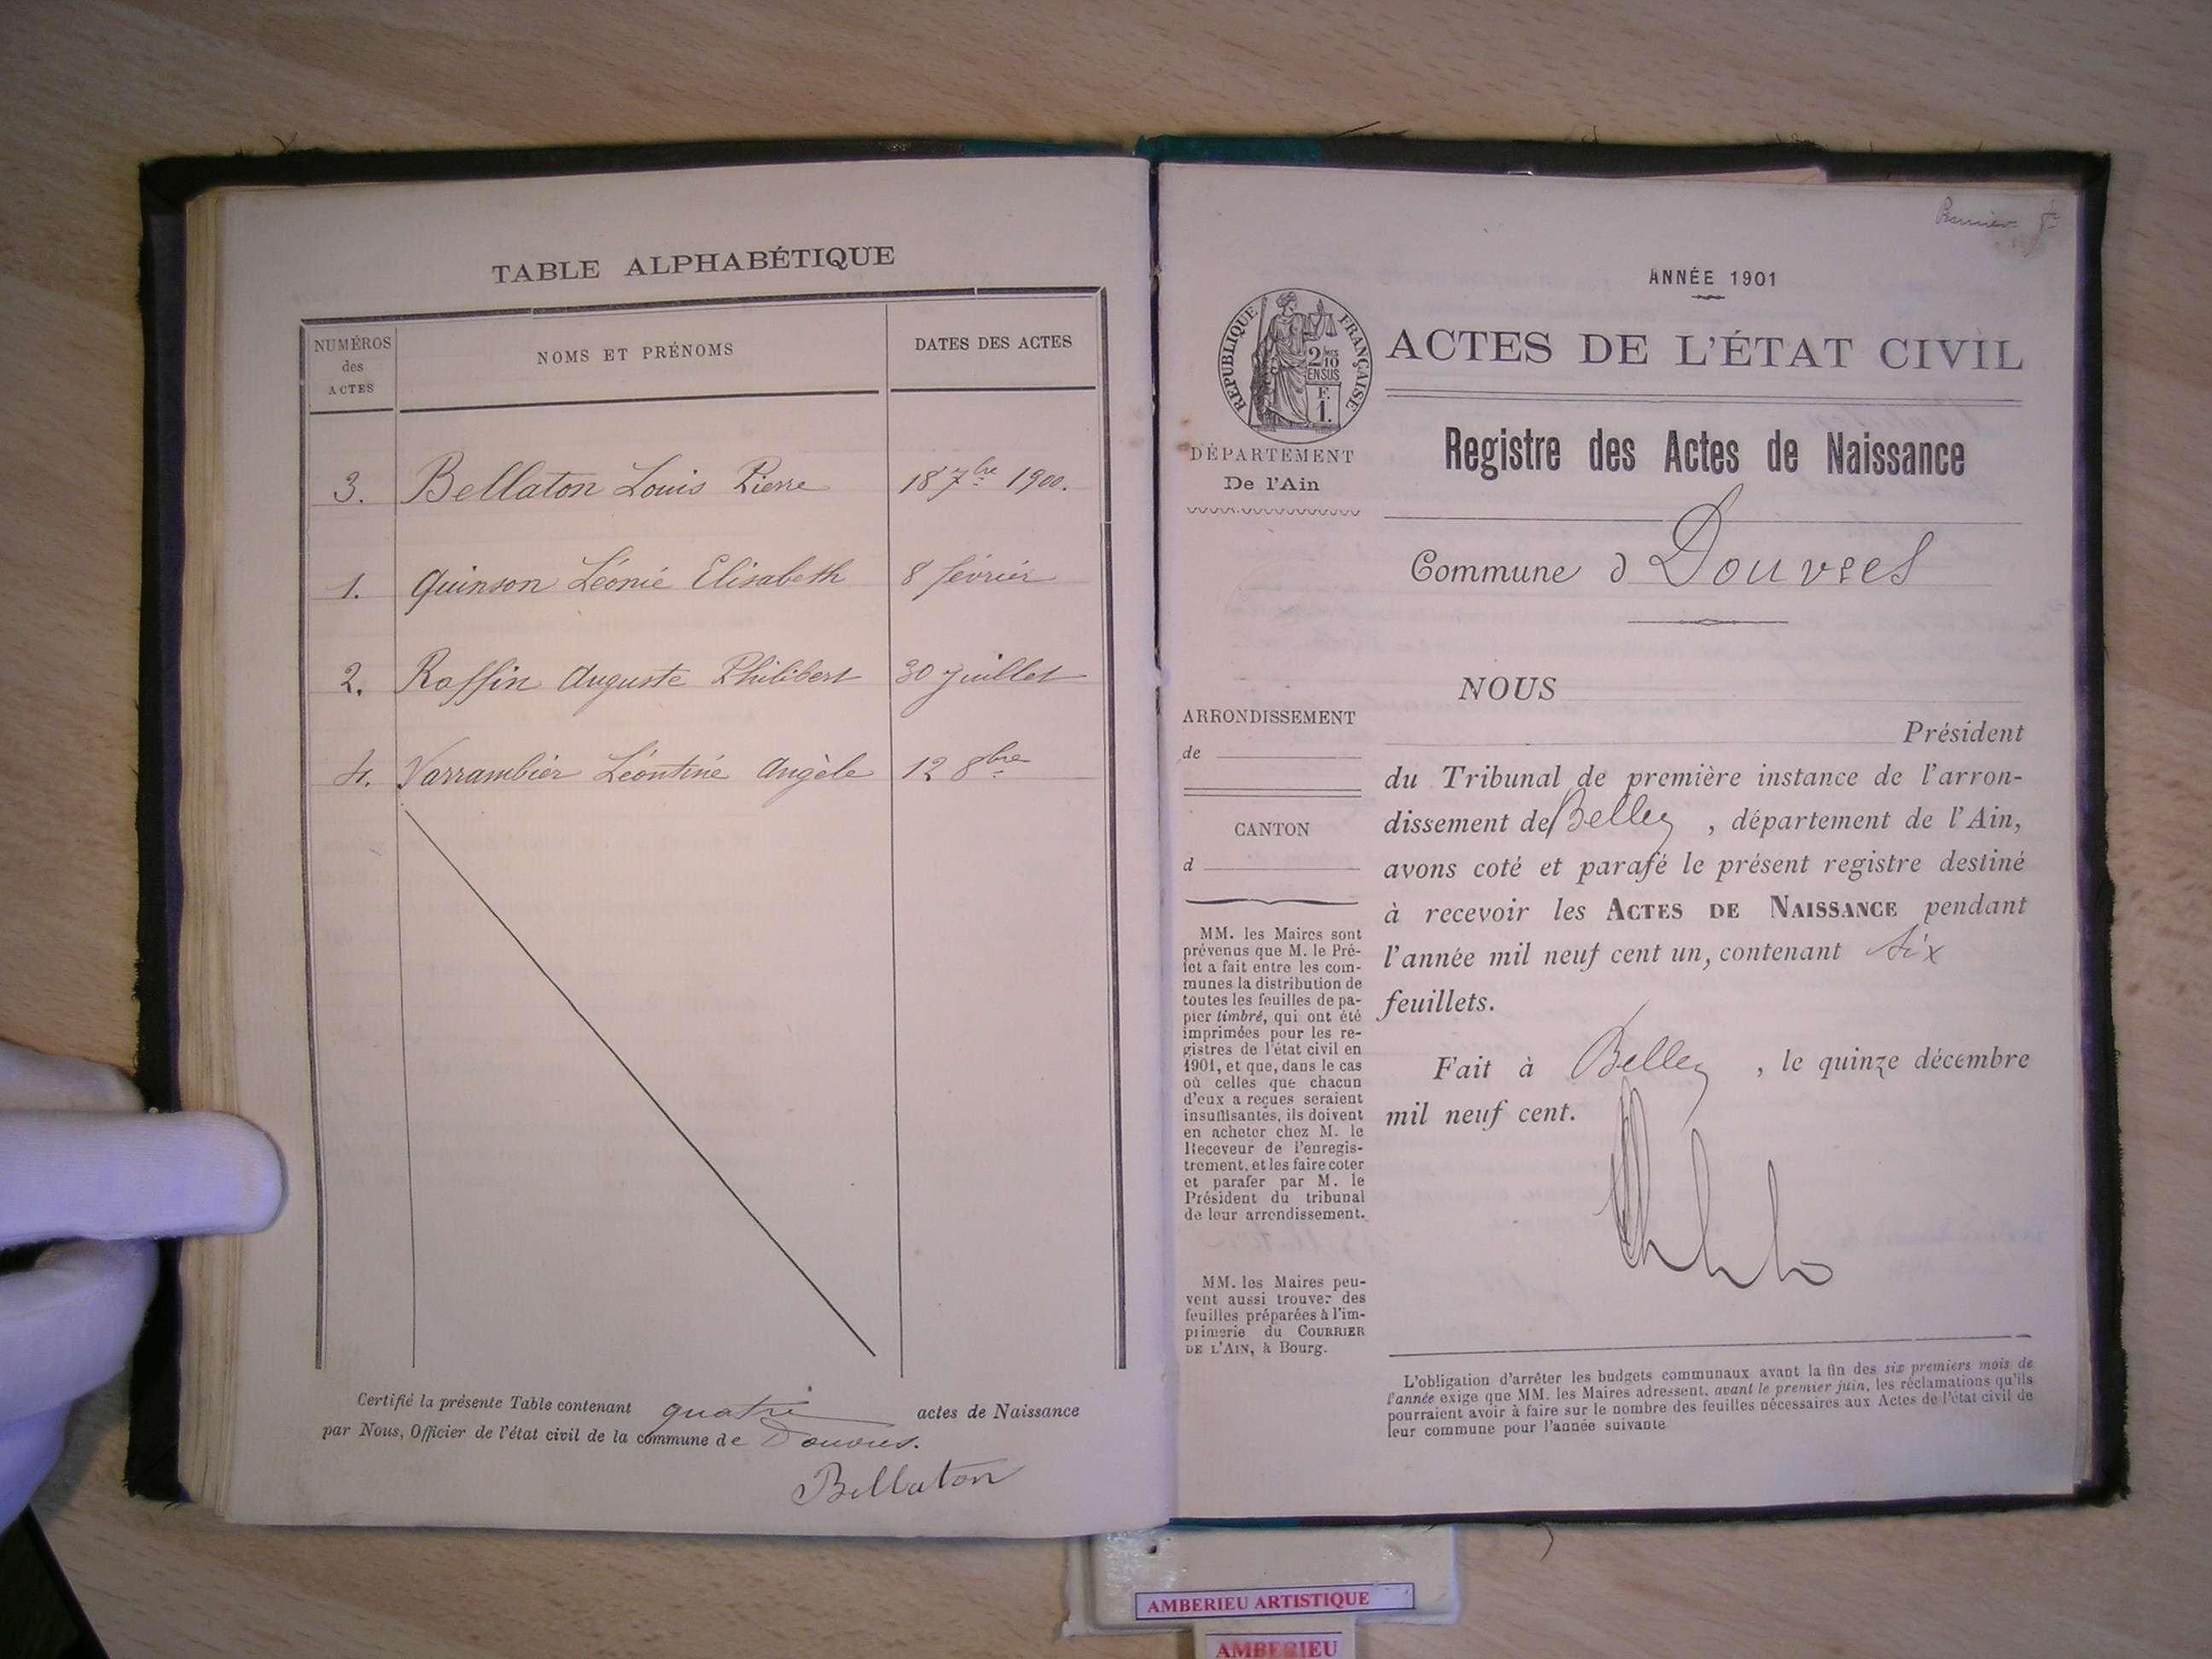 TABLE ALPHABÉTIQUE
NUMÉROS
des
ACTES
NOMS ET PRÉNOMS
DATES DES ACTES
3. Bellaton Louis Pierre 18 7bre 1900.
1. Quinson Léonie Elisabeth 8 février
2. Roffin Auguste Philibert 30 juillet
4. Varrambier Léontine Angèle 12 8bre
Certifié la présente Table contenant quatre actes de Naissance
par Nous, Officier de l'état civil de la commune de Douvres.
Bellaton
Premier
ANNÉE 1901
RÉPUBLIQUE FRANÇAISE
2 10
EN SUS
F.
1.
ACTES DE L'ÉTAT CIVIL
DÉPARTEMENT
De l'Ain
Registre des Actes de Naissance
Commune d Douvres
ARRONDISSEMENT
de
CANTON
d
MM. les Maires sont
prévenus que M. le Pré-
fet a fait entre les com-
munes la distribution de
toutes les feuilles de pa-
pier timbré, qui ont été
imprimées pour les re-
gistres de l'état civil en
1901, et que, dans le cas
où celles que chacun
d'eux a reçues seraient
insuffisantes, ils doivent
en acheter chez M. le
Receveur de l'enregis-
trement, et les faire coter
et parafer par M. le
Président du tribunal
de leur arrondissement.
MM. les Maires peu-
vent aussi trouver des
feuilles préparées à l'im-
primerie du COURRIER
DE L'AIN, à Bourg.
NOUS
Président
du Tribunal de première instance de l'arron-
dissement de Belley, département de l'Ain,
avons coté et parafé le présent registre destiné
à recevoir les ACTES DE NAISSANCE pendant
l'année mil neuf cent un, contenant six
feuillets.
Fait à Belley, le quinze décembre
mil neuf cent.
L'obligation d'arrêter les budgets communaux avant la fin des six premiers mois de
l'année exige que MM. les Maires adressent, avant le premier juin, les réclamations qu'ils
pourraient avoir à faire sur le nombre des feuilles nécessaires aux Actes de l'état civil de
leur commune pour l'année suivante
AMBERIEU ARTISTIQUE
AMBERIEU